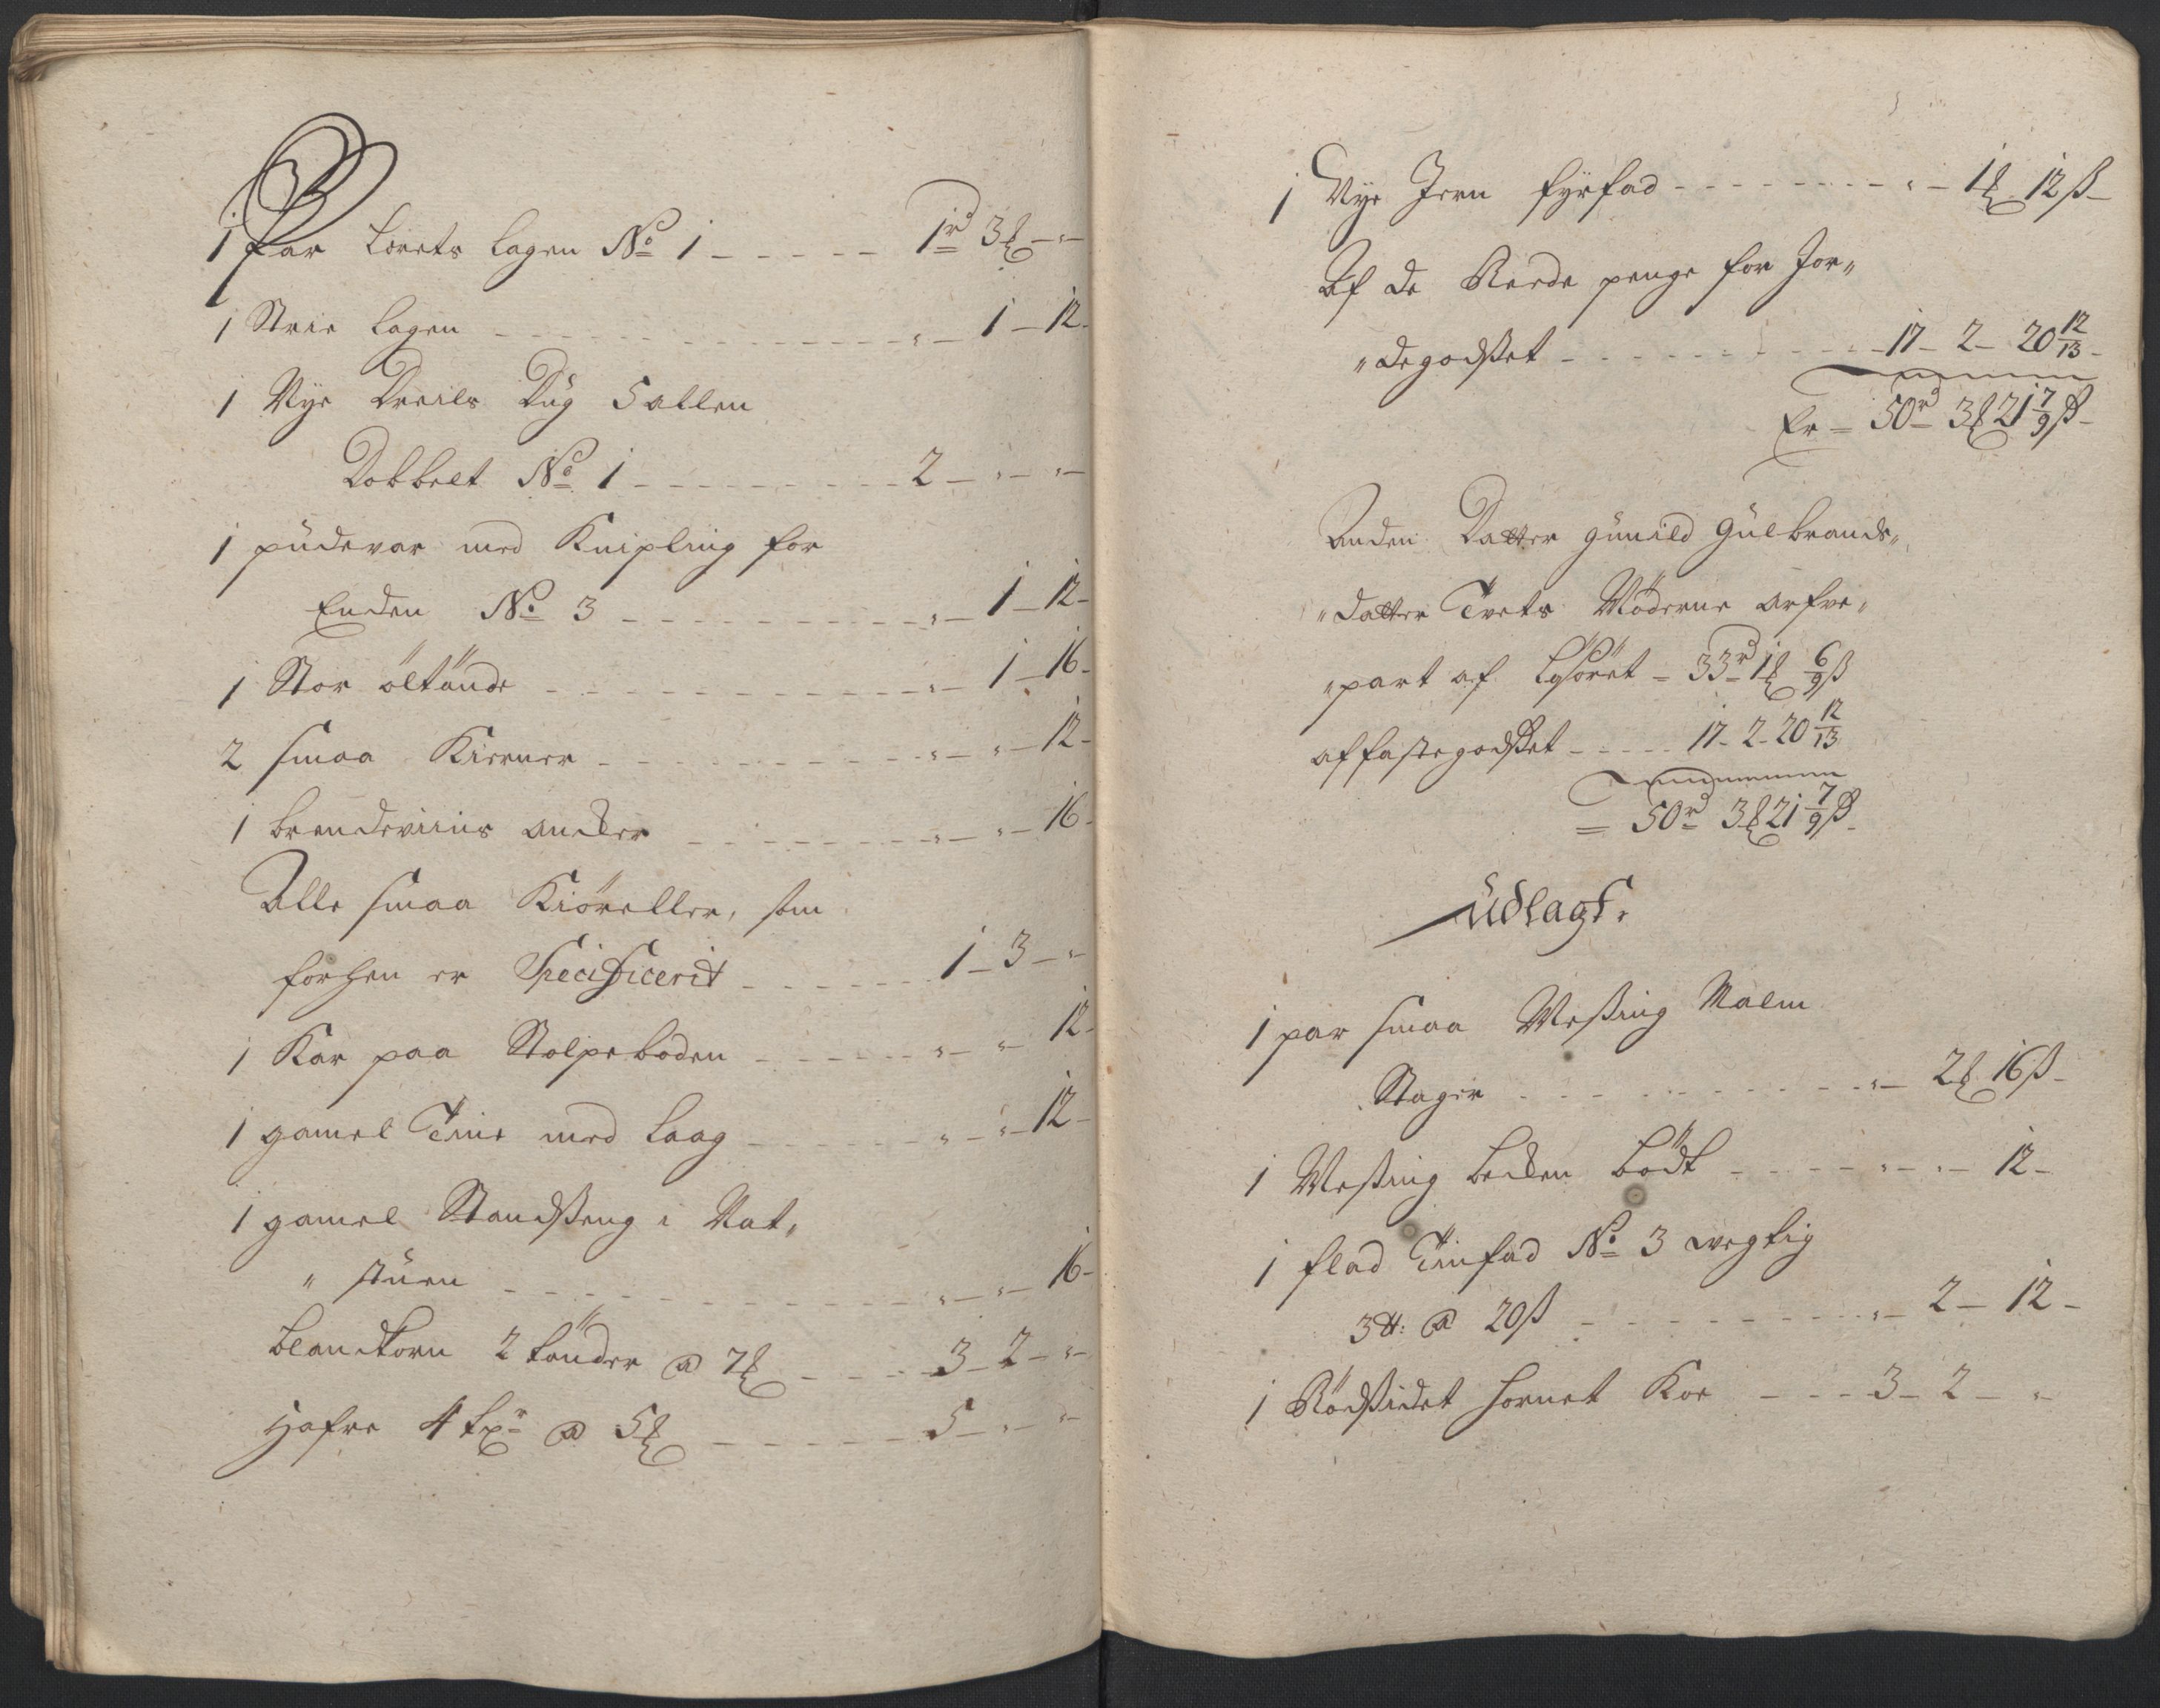 1 Par Lerets Lagen No 1 - - - - - 1rd 3 - "
1 Strie Lagen - - - - - " - 1 - 12 -
1 Nye Dreils Dug 5 allen
Dobbelt No 1 - - - - - 2 - " - "
1 pudevar med Knipling for
Enden No 3 - - - - - " - 1 - 12 -
1 Stor öltönde - - - - - " - 1 - 16 -
2 smaa Kierner - - - - - " - " - 12 -
1 brendeviins ancker - - - - - " - " - 16 -
Alle smaa Kiöreller, som
forhen er Specificerit - - - - - 1 - 3 - "
1 Kar paa Stolpeboden - - - - - " - " 12 -
1 gamel Tine med Laag - - - - - " - " - 12 -
1 gamel Standseng i Nat„
„stuen - - - - - " - " - 16 -
blandkorn 2 tönder @ 7 - - - - 3 - 2 - "
Hafre 4 tr @ 5 - - - - - 5 - " - "
1 Nye Jern fyrfad - - - - - " - 1 12 ß -
Af de penge for Jor„
„degodset - - - - - 17 - 2 - 20 12/13 -
Er - 50rd 3 21 7/9 ß -
Anden Datter Gunild Gulbrands„
„datter Tvets Möderne arfve„
„part af Lösöret = 33rd 1 6/9 ß
af fastegodset - - - - - 17 - 2 - 20 12/13
= 50rd 3 21 7/9 ß -
Udlagt.
1 par smaa Messing Malm
Stager - - - - - " - 2 16 ß -
1 Messing becken bödt - - - - " - " - 12 -
1 flad Tinfad No 3 vegtig
3 ℔: @ 20 ß - - - - - " - 2 - 12 -
1 Rödsidet hornet Koe - - - 3 - 2 - "